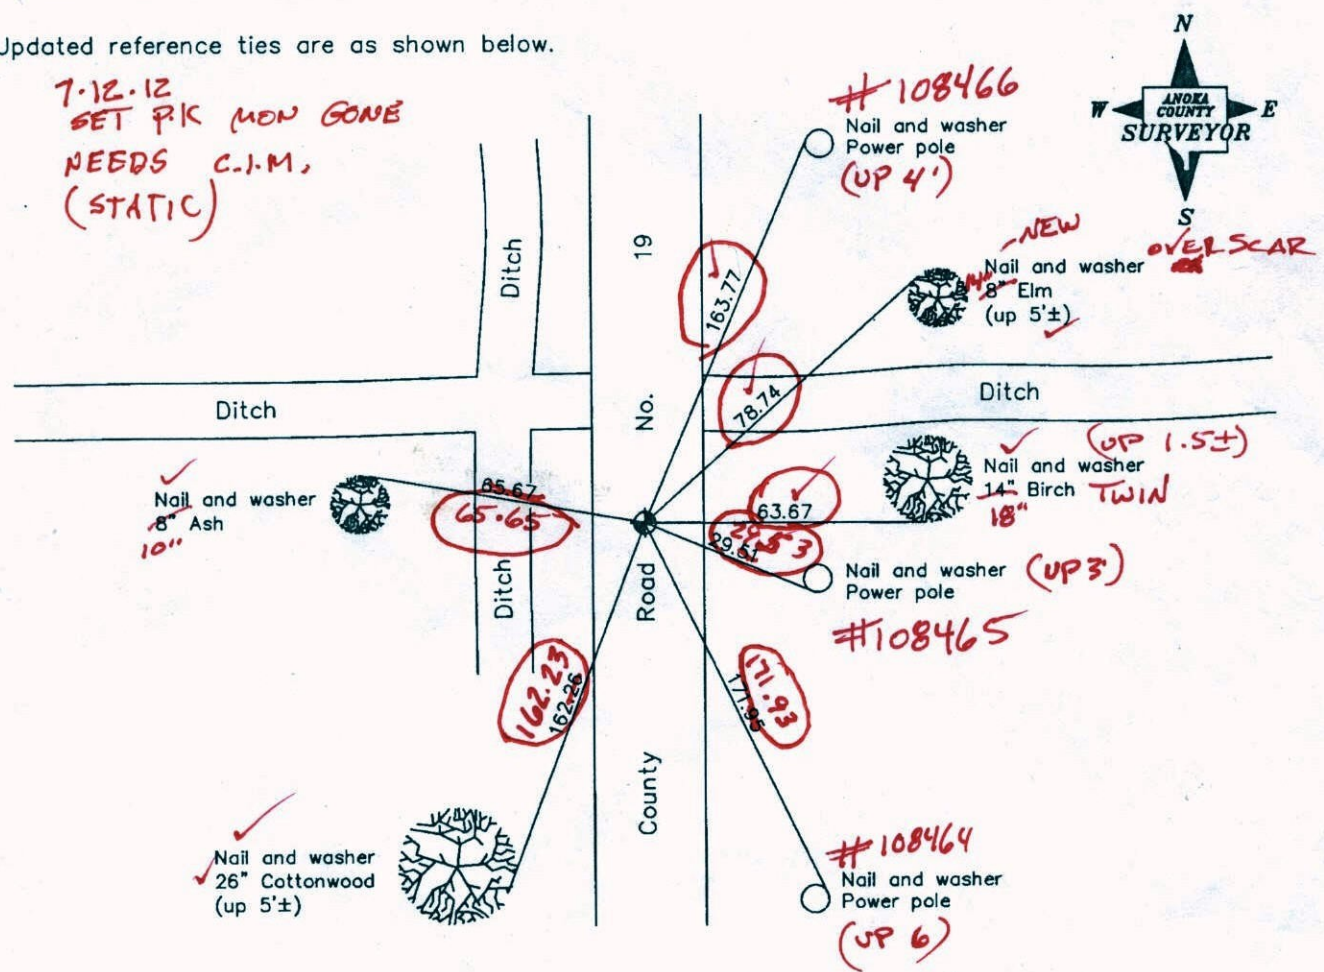 Updated reference ties are as shown below.
7·12·12
SET P.K MON GONE
NEEDS C.I.M.
(STATIC)
N
W
E
S
ANOKA
COUNTY
SURVEYOR
#108466
Nail and washer
Power pole
(UP 4')
NEW
Nail and washer
OVER SCAR
14"
8" Elm
(up 5'±)
Ditch
Ditch
Ditch
Ditch
County Road No. 19
163.77
78.74
(UP 1.5±)
Nail and washer
14" Birch TWIN
18"
63.67
29.53
29.51
Nail and washer (UP 3')
Power pole
#108465
Nail and washer
8" Ash
10"
65.67
65.65
162.23
162.26
171.93
171.95
Nail and washer
26" Cottonwood
(up 5'±)
#108464
Nail and washer
Power pole
(UP 6)